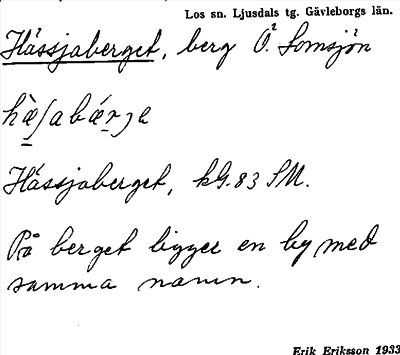 Los sn. Ljusdals tg. Gävleborgs län.
Hässjaberget, berg Ö. Somsjön
hæ̀ʃabǽrjə
Hässjaberget, kG. 83 SM.
På berget ligger en by med
samma namn.
Erik Eriksson 1933